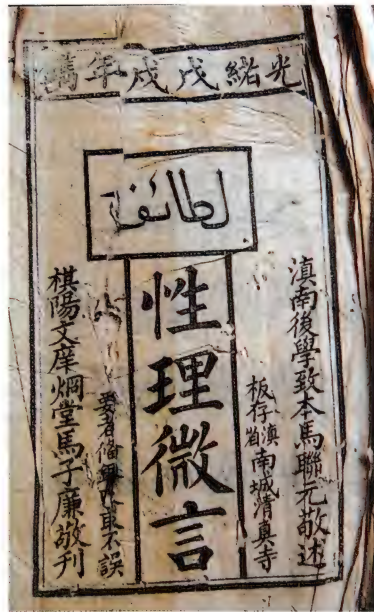 光緒戊戌年鐫
لطائف
滇南後學致本馬聯元敬述
板存滇省南城清真寺
性理微言
要者不誤
棋陽文庠烱堂馬子廉敬刊